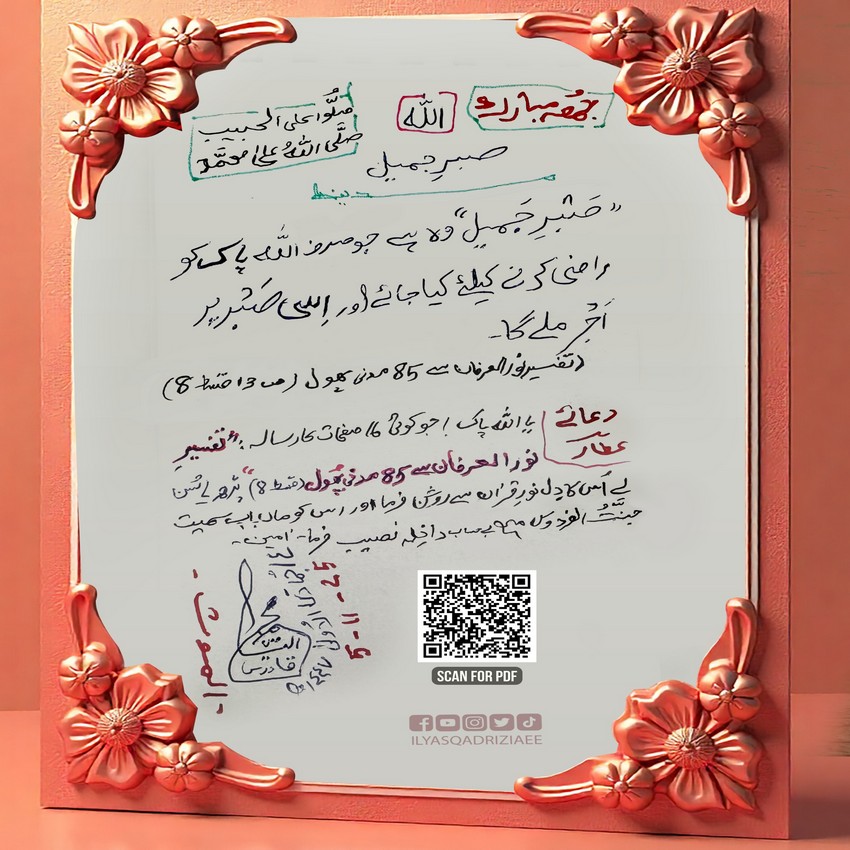 جُمُعہ مبارک
اللہ
صَلُّوا علی الحبیب
صلَّی اللہُ علیٰ محمَّد
صبرِ جمیل
مدینہ
”صَبْرِ جَمیل“ وہ ہے جو صرف اللہ پاک کو
راضی کرنے کیلئے کیا جائے اور اِسی صَبْر پر
اَجْر ملے گا۔
(تفسیر نور العرفان سے 85 مدنی پھول (ص 13 قسط 8)
دعائے عطّار
یا اللہ پاک! جو کوئی 16 صفحات کا رسالہ: ”تفسیرِ
نور العرفان سے 85 مدنی پھول (قسط 8)“ پڑھ یا سُن
لے اُس کا دِل نورِ قرآن سے روشن فرما اور اس کو ماں باپ سمیت
جنَّتُ الفردوس میں بے حساب داخِلہ نصیب فرما۔ اٰمین۔
۔الموت۔
5-11-25
SCAN FOR PDF
ILYASQADRIZIAEE